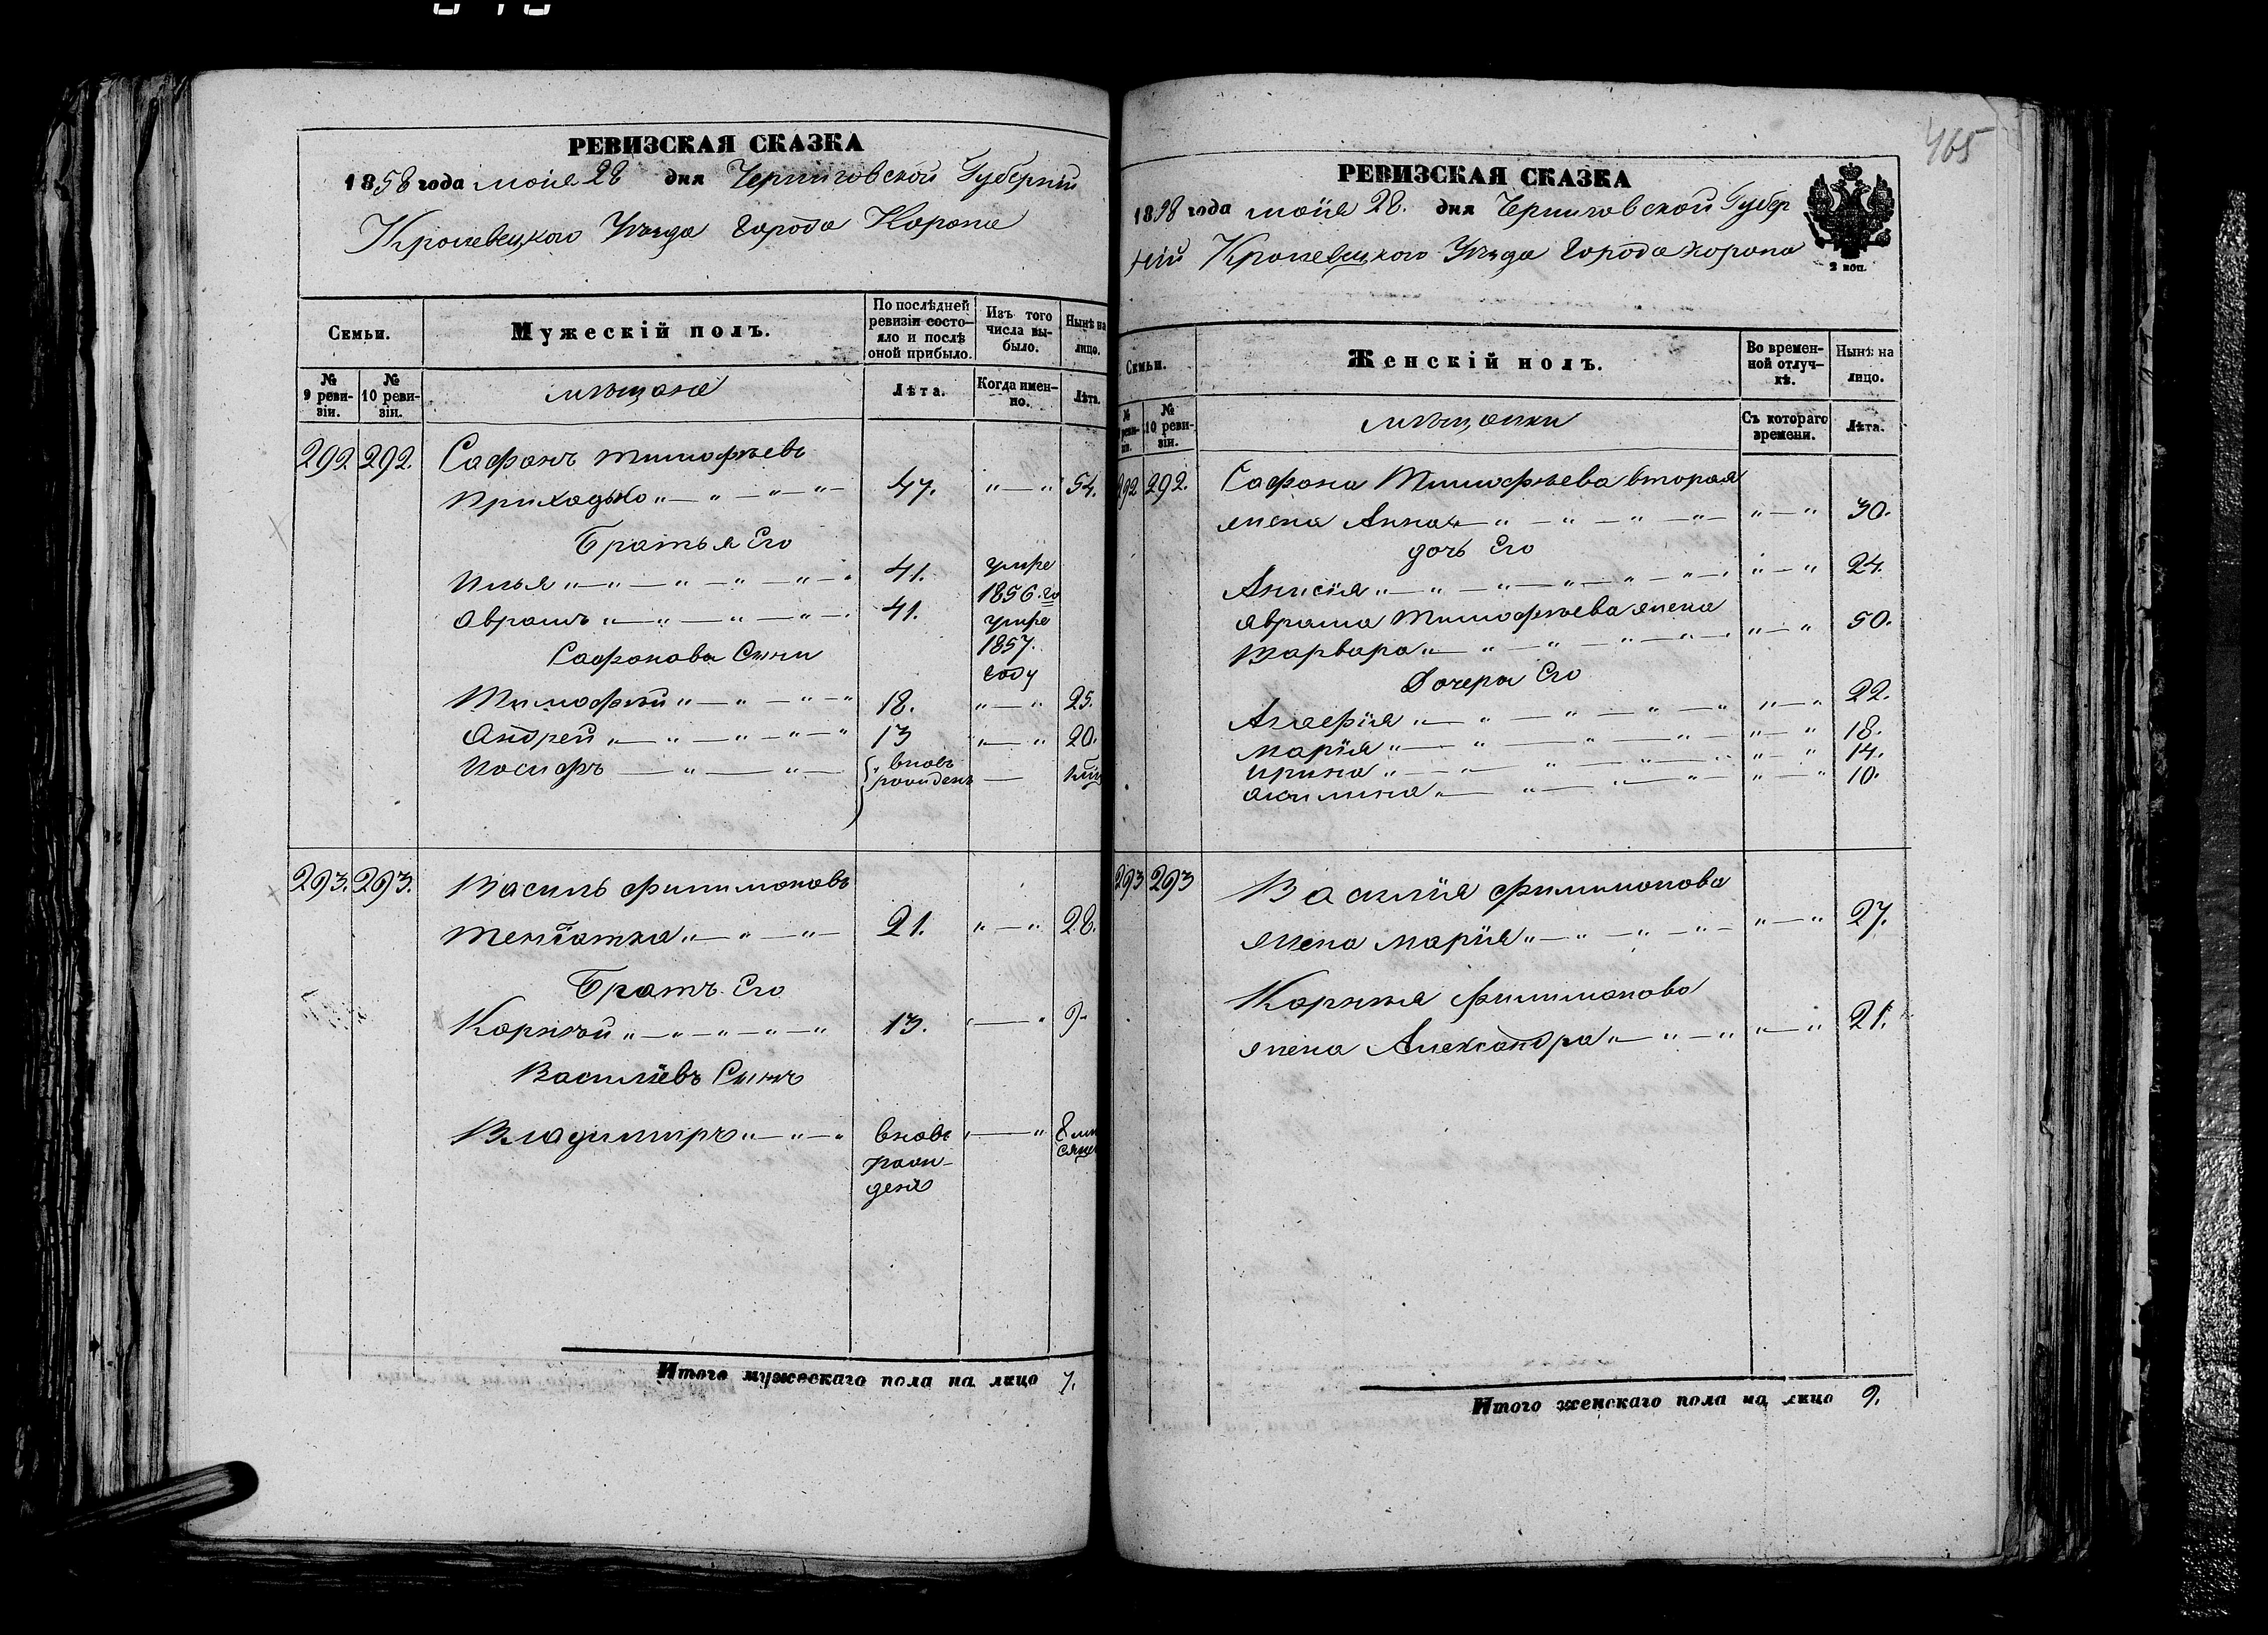 РЕВИЗСКАЯ СКАЗКА
1858 года маія 28 дня Черниговской Губерніи
Кролевецкого Уезда Города Коропа
Семьи.
Мужескій полъ.
По послѣдней ревизіи состо-
яло и послѣ
оной прибыло.
Изъ того
числа вы-
было.
Нынѣ на
лицо.
№
9 реви-
зіи.
№
10 реви-
зіи.
мѣщане
Лѣта.
Когда имен-
но.
Лѣта.
292 292. Сафонъ Тимофѣевъ
Приходько 47. 54.
Братья Его
Илья 41. умре
1856. го
Аврамъ 41. умре
1857.
году
Сафонова Сыни
Тимофѣй 18. 25.
Андрей 13 20.
Иосифъ вновь
рожденъ
293. 293. Василь Филимоновъ
21. 28.
Братъ Его
Корнѣй 13.
Василіевъ Сынъ
Владимиръ вновь
рож-
денъ
8 мѣ
сяце
Итого мужескаго пола на лицо 7.
465
РЕВИЗСКАЯ СКАЗКА
1858 года маія 28. дня Черниговской Губер
ніи Кролевецкого Уезда Города Коропа
2 коп.
Семьи.
Женскій полъ.
Во времен-
ной отлуч-
кѣ.
Нынѣ на
лицо.
№
10 реви-
зіи.
мѣщанки
Съ котораго
времени.
Лѣта.
292 292. Сафона Тимофѣева вторая
жена Анна 30.
дочь Его
Анисія 24.
Аврама Тимофѣева жена
Варвара 50.
Дочери Его
Агафія 22.
Марія 18.
Ирина 14.
Акилина 10.
293 293 Василія Филимонова
жена Марія 27.
Корнѣя Филимонова
жена Александра 21.
Итого женскаго пола на лицо 9.